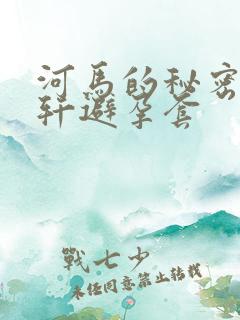 河馬的秘密
軒避孕套
戰七少
未經同意禁止轉載